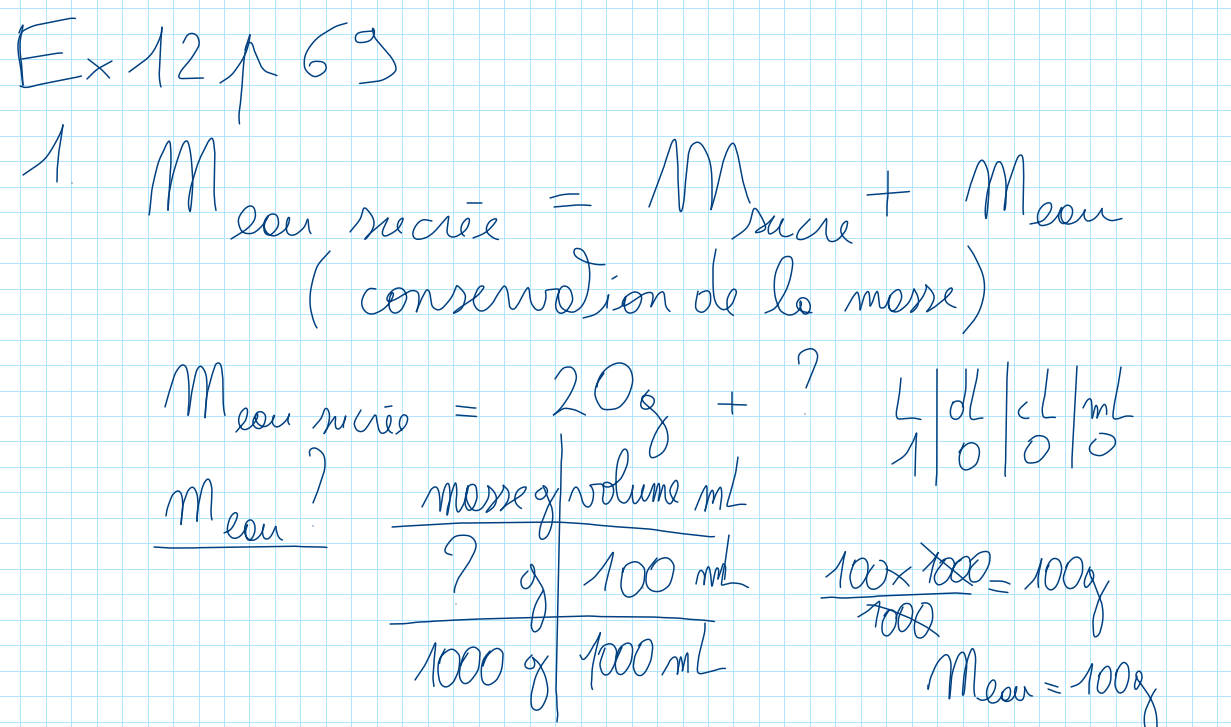 Ex 12 p 69
1. M eau sucrée = M sucre + M eau
(conservation de la masse)
M eau sucrée = 20g + ?
L | dL | cL | mL
1 | 0 | 0 | 0
M eau ?
masse g | volume mL
? g | 100 mL
1000 g | 1000 mL
100 x 1000 = 100g
1000
M eau = 100g